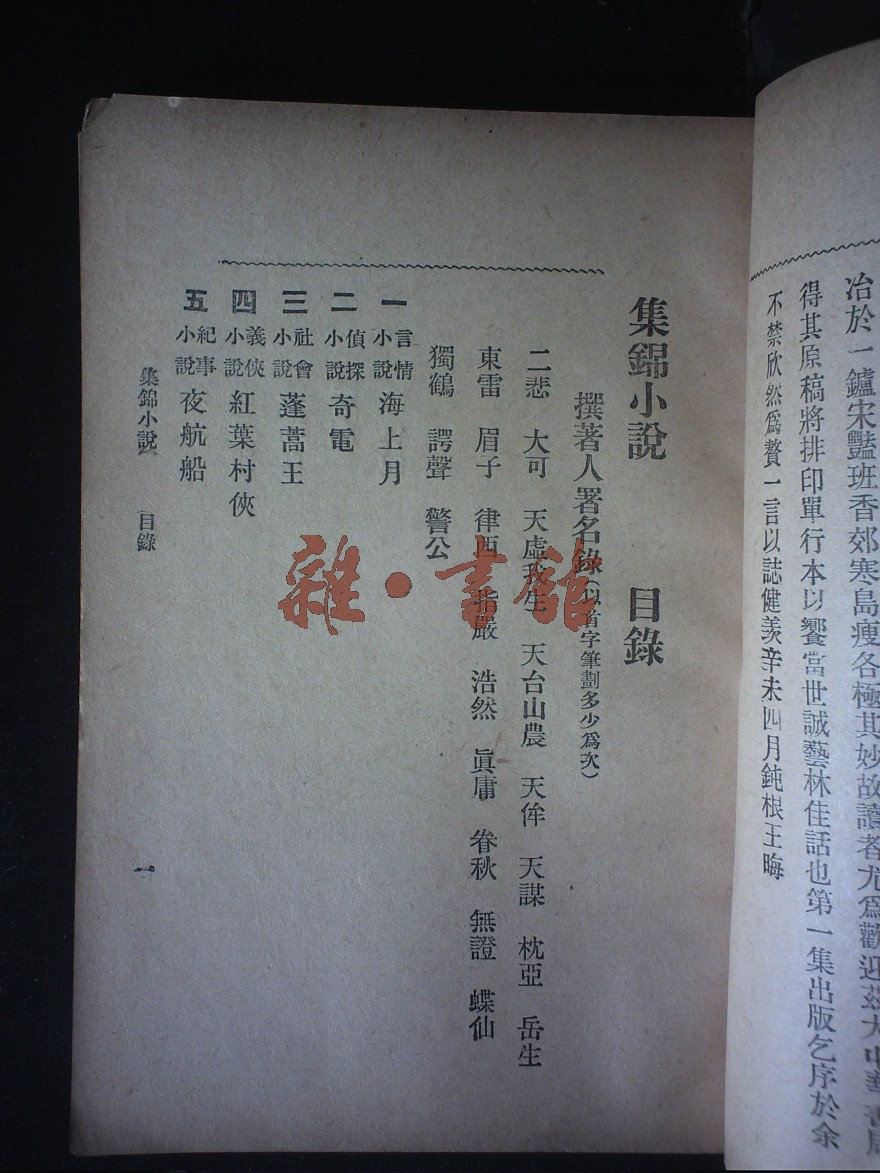 冶於一鑪宋豔班香郊寒島瘦各極其妙故讀者尤爲歡迎茲大中華書局
得其原稿將排印單行本以饗當世誠藝林佳話也第一集出版乞序於余
不禁欣然爲贅一言以誌健羨辛未四月鈍根王晦
集錦小說 目錄
撰著人署名錄(以首字筆劃多少爲次)
二悲 大可 天虛我生 天台山農 天侔 天謀 枕亞 岳生
東雷 眉子 律西 指嚴 浩然 眞庸 眷秋 無證 蝶仙
獨鶴 諤聲 警公
一 言情小說 海上月
二 偵探小說 奇電
三 社會小說 蓬蒿王
四 義俠小說 紅葉村俠
五 紀事小說 夜航船
集錦小說 目錄
一
雜·書館